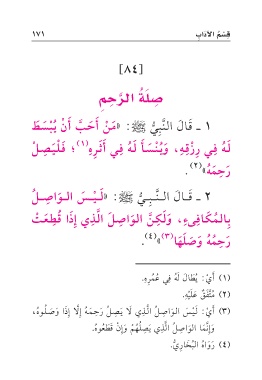 قِسْمُ الآدَابِ ١٧١
[٨٤]
صِلَةُ الرَّحِمِ
١ ـ قَالَ النَّبِيُّ ﷺ: «مَنْ أَحَبَّ أَنْ يُبْسَطَ
لَهُ فِي رِزْقِهِ، وَيُنْسَأَ لَهُ فِي أَثَرِهِ(١)؛ فَلْيَصِلْ
رَحِمَهُ»(٢).
٢ ـ قَالَ النَّبِيُّ ﷺ: «لَيْسَ الوَاصِلُ
بِالمُكَافِىءِ، وَلَكِنَّ الوَاصِلَ الَّذِي إِذَا قُطِعَتْ
رَحِمُهُ وَصَلَهَا(٣)»(٤).
(١) أَيْ: يُطَالَ لَهُ فِي عُمُرِهِ.
(٢) مُتَّفَقٌ عَلَيْهِ.
(٣) أَيْ: لَيْسَ الوَاصِلُ الَّذِي لَا يَصِلُ رَحِمَهُ إِلَّا إِذَا وَصَلُوهُ،
وَإِنَّمَا الوَاصِلُ الَّذِي يَصِلُهُمْ وَإِنْ قَطَعُوهُ.
(٤) رَوَاهُ البُخَارِيُّ.